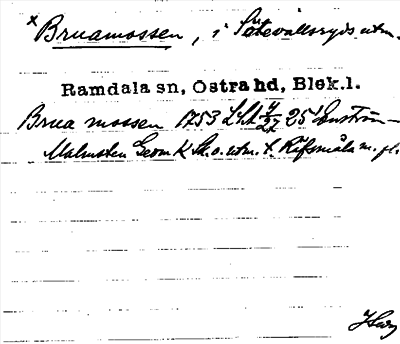 x Bruamossen, i Sätevallsryds utm.
Ramdala sn, Östra hd, Blek.l.
Brua mossen 1753 LSA 4/27 25 Enström-
Malmsten Geom K Sk.o. utm. t. Räfsmåla m. fl.